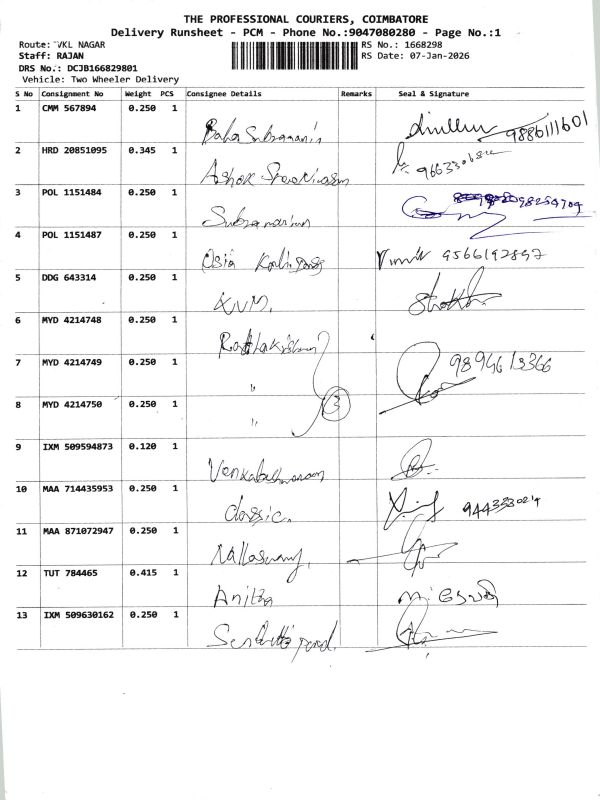 THE PROFESSIONAL COURIERS, COIMBATORE
Delivery Runsheet - PCM - Phone No.:9047080280 - Page No.:1
Route: VKL NAGAR RS No.: 1668298
Staff: RAJAN RS Date: 07-Jan-2026
DRS No.: DCJB166829801
Vehicle: Two Wheeler Delivery
S No Consignment No Weight PCS Consignee Details Remarks Seal & Signature
1 CMM 567894 0.250 1
Baba Subramani 9886111601
2 HRD 20851095 0.345 1
Ashok
3 POL 1151484 0.250 1
Subramanian
4 POL 1151487 0.250 1
Osia 9566192897
5 DDG 643314 0.250 1
KVM.
6 MYD 4214748 0.250 1
Radhakrishnan
7 MYD 4214749 0.250 1
" 9894613366
8 MYD 4214750 0.250 1
" 3
9 IXM 509594873 0.120 1
Venkateshwaran
10 MAA 714435953 0.250 1
classic.
11 MAA 871072947 0.250 1
Nallaswamy.
12 TUT 784465 0.415 1
Anitha
13 IXM 509630162 0.250 1